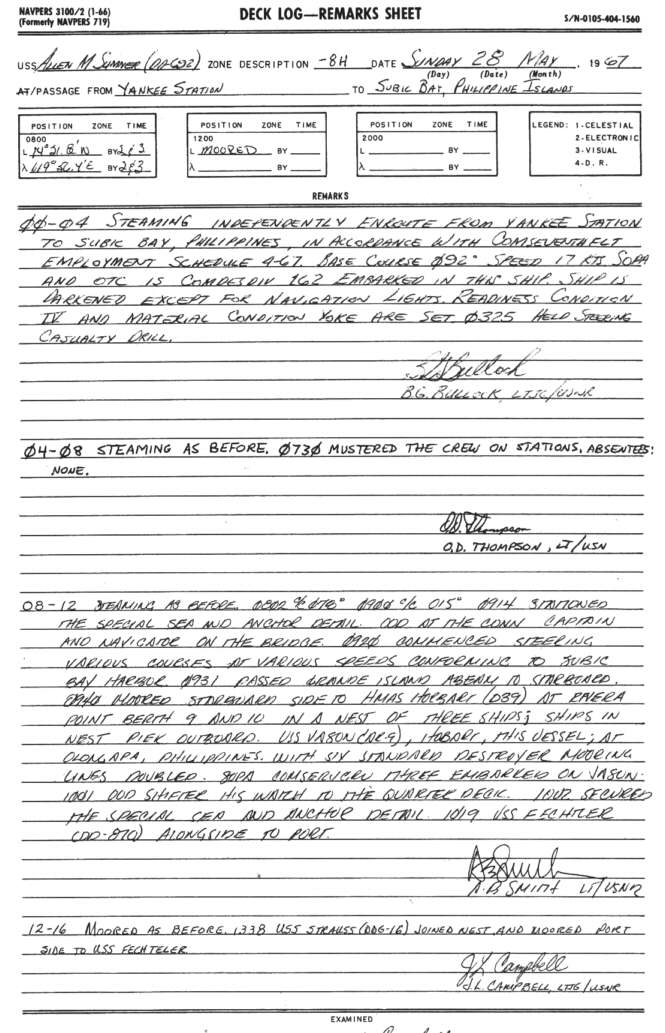 NAVPERS 3100/2 (1-66)
(Formerly NAVPERS 719)
DECK LOG—REMARKS SHEET
S/N-0105-404-1560
USS ALLEN M SUMNER (DD-692) ZONE DESCRIPTION -8H DATE SUNDAY 28 MAY, 1967
(Day) (Date) (Month)
AT/PASSAGE FROM YANKEE STATION TO SUBIC BAY, PHILIPPINE ISLANDS
POSITION ZONE TIME
0800
L 14° 51.8'N BY 2&3
λ 119° 52.4'E BY 2&3
POSITION ZONE TIME
1200
L MOORED BY
λ BY
POSITION ZONE TIME
2000
L BY
λ BY
LEGEND: 1-CELESTIAL
2-ELECTRONIC
3-VISUAL
4-D. R.
REMARKS
00-04 STEAMING INDEPENDENTLY ENROUTE FROM YANKEE STATION
TO SUBIC BAY, PHILIPPINES, IN ACCORDANCE WITH COMSEVENTHFLT
EMPLOYMENT SCHEDULE 4-67. BASE COURSE 092° SPEED 17 KTS SOPA
AND OTC IS COMDESDIV 162 EMBARKED IN THIS SHIP. SHIP IS
DARKENED EXCEPT FOR NAVIGATION LIGHTS. READINESS CONDITION
IV AND MATERIAL CONDITION YOKE ARE SET. 0325 HELD STEERING
CASUALTY DRILL.
BG Bullock
B.G. BULLOCK, LTJG/USNR
04-08 STEAMING AS BEFORE. 0730 MUSTERED THE CREW ON STATIONS, ABSENTEES:
NONE.
O.D. Thompson
O.D. THOMPSON, LT/USN
08-12 STEAMING AS BEFORE. 0802 C/C 078° 0900 C/C 015° 0914 STATIONED
THE SPECIAL SEA AND ANCHOR DETAIL. OOD AT THE CONN CAPTAIN
AND NAVIGATOR ON THE BRIDGE. 0920 COMMENCED STEERING
VARIOUS COURSES AT VARIOUS SPEEDS CONFORMING TO SUBIC
BAY HARBOR 0931 PASSED GRANDE ISLAND ABEAM TO STARBOARD.
0940 MOORED STARBOARD SIDE TO HMAS HOBART (D39) AT RIVERA
POINT BERTH 9 AND 10 IN A NEST OF THREE SHIPS; SHIPS IN
NEST PIER OUTBOARD. USS JASON (AR8), HOBART, THIS VESSEL; AT
OLONGAPA, PHILIPPINES. WITH SIX STANDARD DESTROYER MOORING
LINES DOUBLED. SOPA COMSERVGRU THREE EMBARKED ON JASON.
1001 OOD SHIFTED HIS WATCH TO THE QUARTER DECK. 1002 SECURED
THE SPECIAL SEA AND ANCHOR DETAIL. 1019 USS FECHTLER
(DD-870) ALONGSIDE TO PORT.
A.B. SMITH LT/USNR
12-16 MOORED AS BEFORE. 1338 USS STRAUSS (DDG-16) JOINED NEST AND MOORED PORT
SIDE TO USS FECHTELER
JL Campbell
J.L. CAMPBELL, LTJG/USNR
EXAMINED